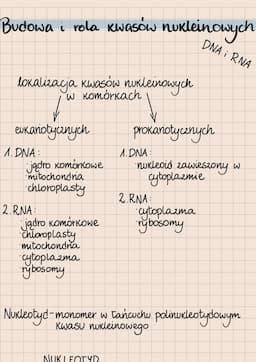 Budowa i rola kwasów nukleinowych
DNA i RNA
lokalizacja kwasów nukleinowych
w komórkach
eukariotycznych
1. DNA:
jądro komórkowe
mitochondria
chloroplasty
2. RNA:
jądro komórkowe
chloroplasty
mitochondria
cytoplazma
rybosomy
prokariotycznych
1. DNA:
nukleoid zawieszony w
cytoplazmie
2. RNA:
cytoplazma
rybosomy
Nukleotyd - monomer w łańcuchu polinukleotydowym
kwasu nukleinowego
NUKLEOTYD